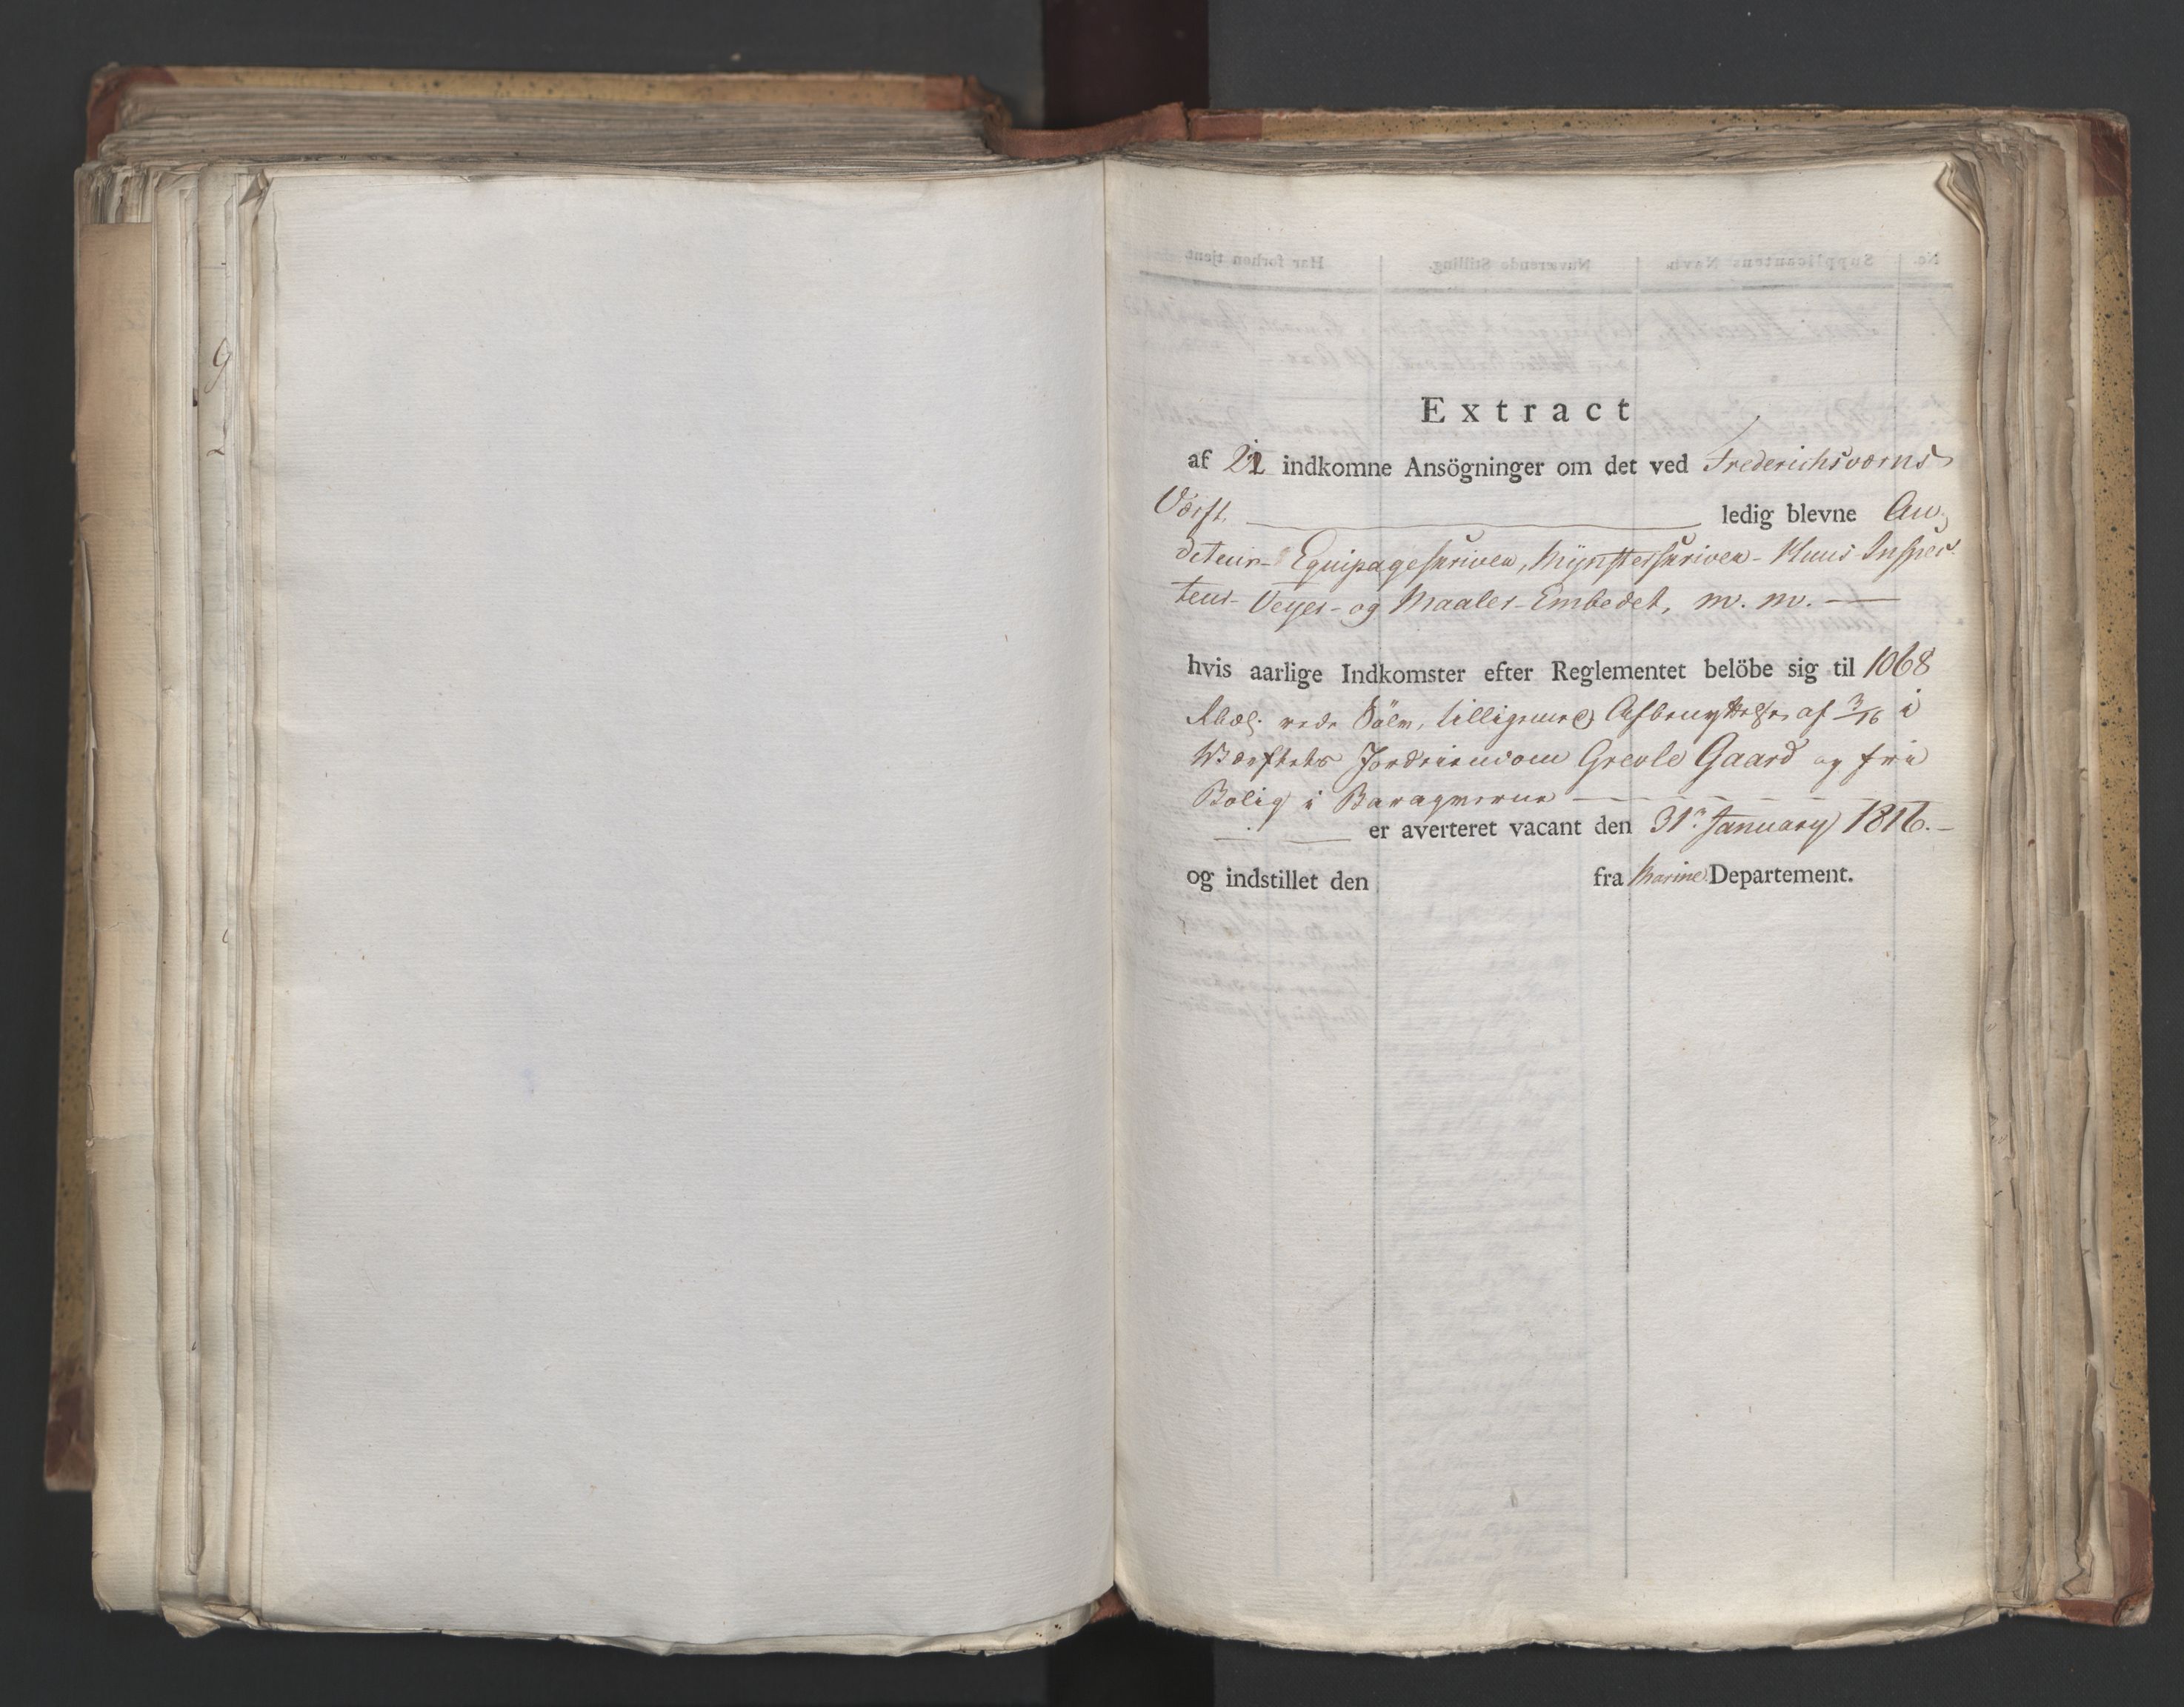 Extract
af 22 indkomne Ansögninger om det ved Frederichsværns
Værft, ledig blevne Au-
diteur- Equipageskriver, Mynsterskriver- Huus-Inspec-
teur- Veyer- og Maaler-Embedet, m. m. —
hvis aarlige Indkomster efter Reglementet belöbe sig til 1068
Rbdl. rede Sölv, tilligemed Afbenyttelse af 3/16 i
Værftets Jordeiendom Grevle Gaard og frie
Bolig i Baraquerne
er averteret vacant den 31te January 1816.
og indstillet den fra Marine Departement.